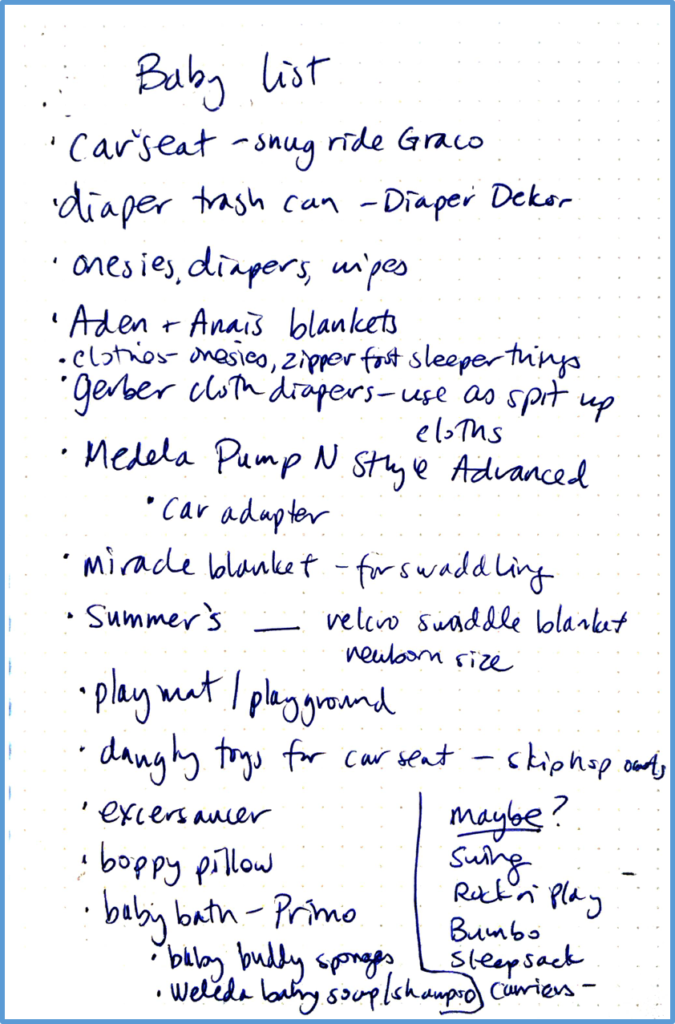 Baby list
• car seat - snug ride Graco
• diaper trash can - Diaper Dekor
• onesies, diapers, wipes
• Aden + Anais blankets
• clothes - onesies, zipper foot sleeper things
• gerber cloth diapers - use as spit up
cloths
• Medela Pump N Style Advanced
• car adapter
• miracle blanket - for swaddling
• Summer's ___ velcro swaddle blanket
newborn size
• play mat / playground
• dangly toys for car seat - skiphop
• excersaucer
• boppy pillow
• baby bath - Primo
• baby buddy sponges
• Weleda baby soap/shampoo
maybe?
Swing
Rock n' Play
Bumbo
Sleepsack
carriers -